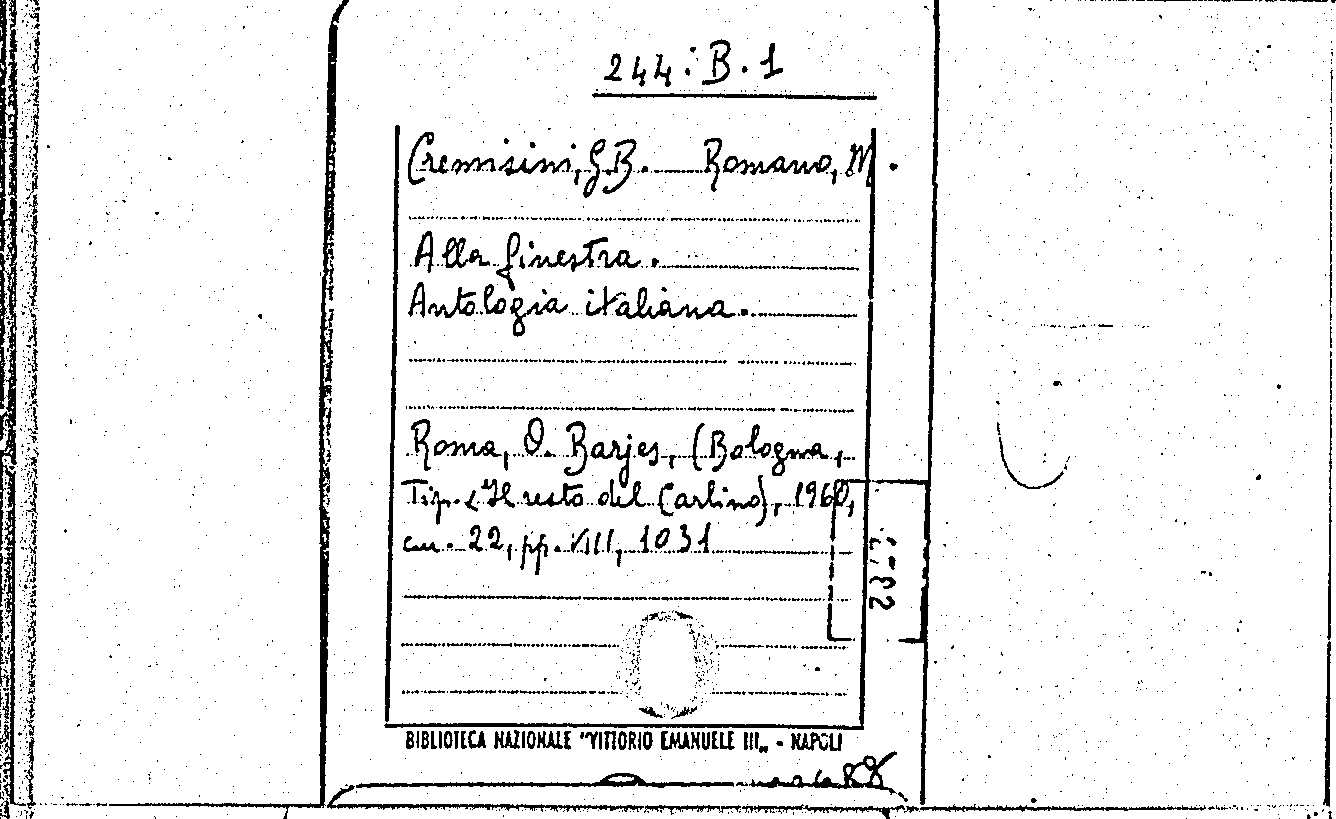 244.B.1
Cremisini, G.B. Romano, M.
Alla finestra.
Antologia italiana.
Roma, O. Barjes, (Bologna,
Tip. "Il resto del Carlino), 1960,
cm. 22, pp. VIII, 1031
BIBLIOTECA NAZIONALE "VITTORIO EMANUELE III„ - NAPOLI